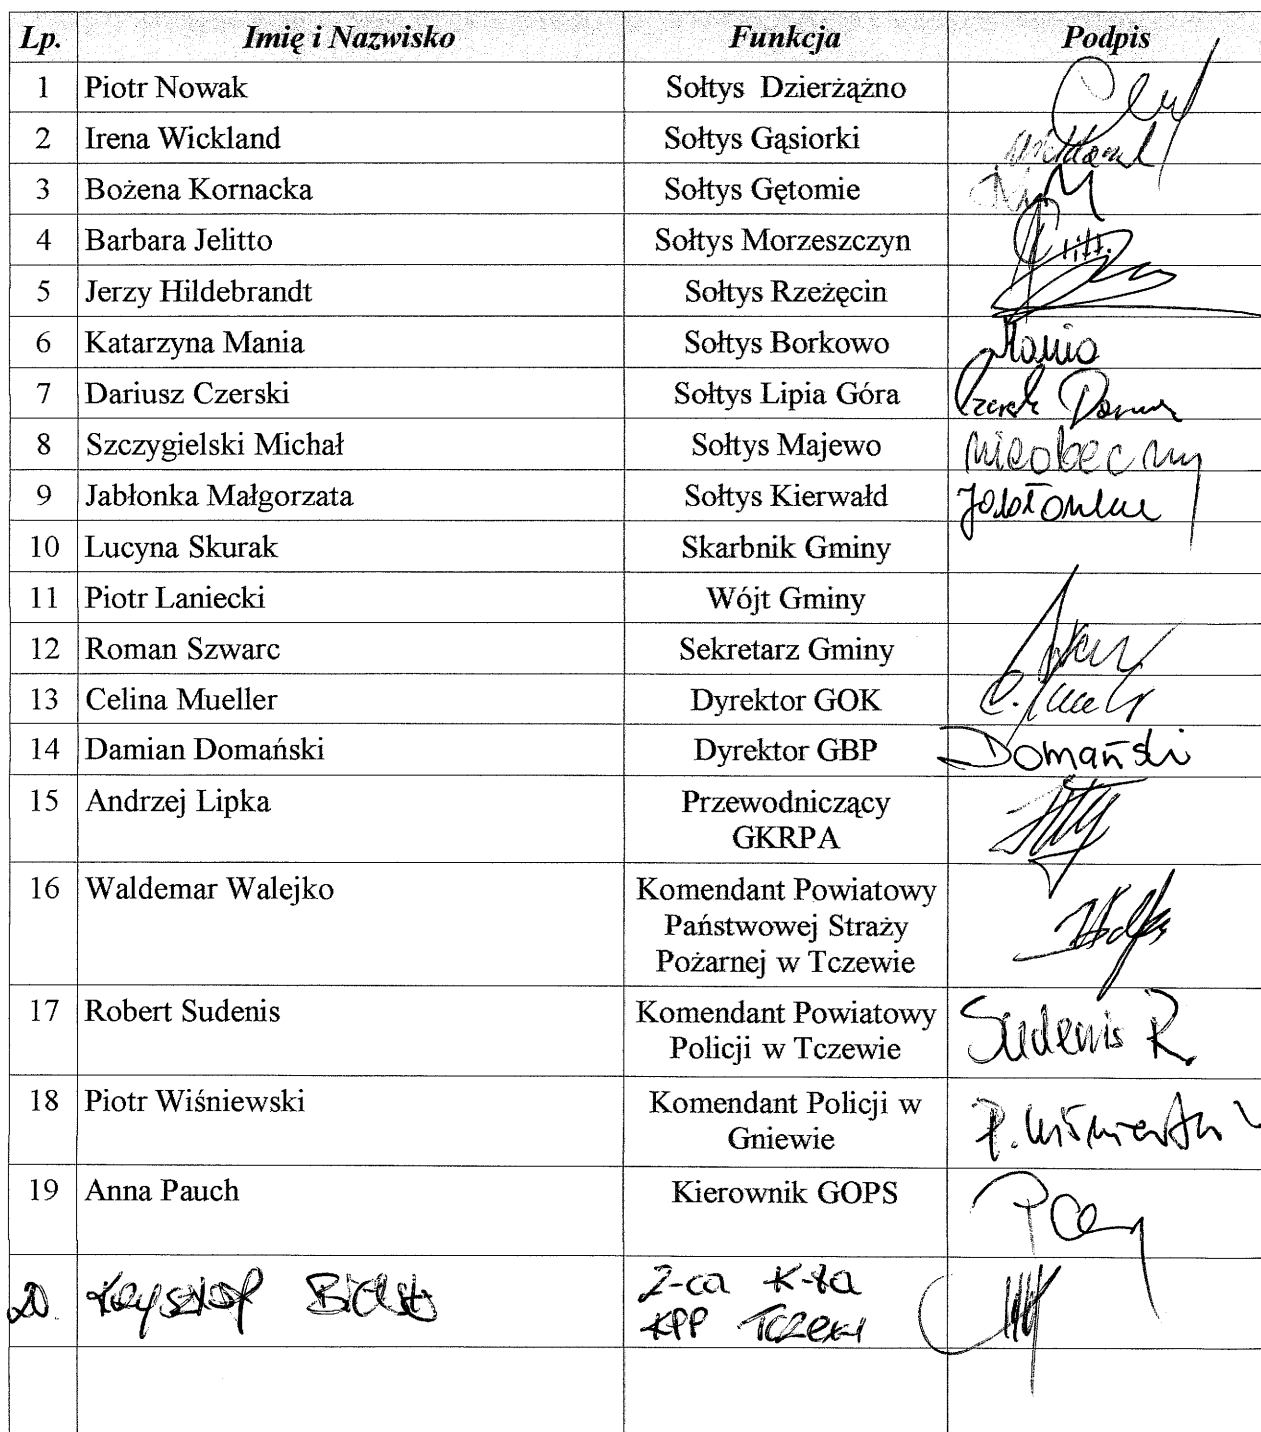 Lp. Imię i Nazwisko Funkcja Podpis
1 Piotr Nowak Sołtys Dzierżążno
2 Irena Wickland Sołtys Gąsiorki
3 Bożena Kornacka Sołtys Gętomie
4 Barbara Jelitto Sołtys Morzeszczyn
5 Jerzy Hildebrandt Sołtys Rzeżęcin
6 Katarzyna Mania Sołtys Borkowo Mania
7 Dariusz Czerski Sołtys Lipia Góra
8 Szczygielski Michał Sołtys Majewo nieobecny
9 Jabłonka Małgorzata Sołtys Kierwałd Jabłonka
10 Lucyna Skurak Skarbnik Gminy
11 Piotr Laniecki Wójt Gminy
12 Roman Szwarc Sekretarz Gminy
13 Celina Mueller Dyrektor GOK
14 Damian Domański Dyrektor GBP Domański
15 Andrzej Lipka Przewodniczący
GKRPA
16 Waldemar Walejko Komendant Powiatowy
Państwowej Straży
Pożarnej w Tczewie
17 Robert Sudenis Komendant Powiatowy Sudenis R
Policji w Tczewie
18 Piotr Wiśniewski Komendant Policji w P. Wiśniewski
Gniewie
19 Anna Pauch Kierownik GOPS
20. Krzysztof Z-ca K-ta
KPP Tczew